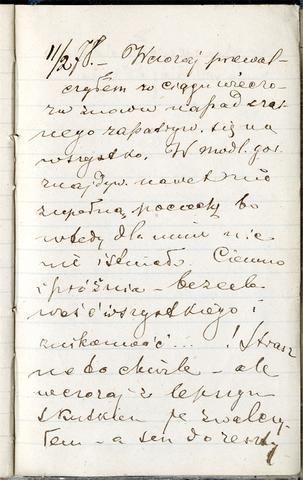 11/2 78. – Wczoraj przewal-
czyłem w ciągu wieczo-
ra znowu napad czar-
nego zapatryw. się na
wszystko. W modl. go
znajdyw. nawet nie
zupełną pociechę bo
wtedy dla mnie nic
nie istniało. Ciemno
i próżnia – bezcelo-
wość wszystkiego i
znikomość... ! Strasz
ne to chwile – ale
wczoraj z lepszym
skutkiem je zwalczy-
łem – a sen do reszty